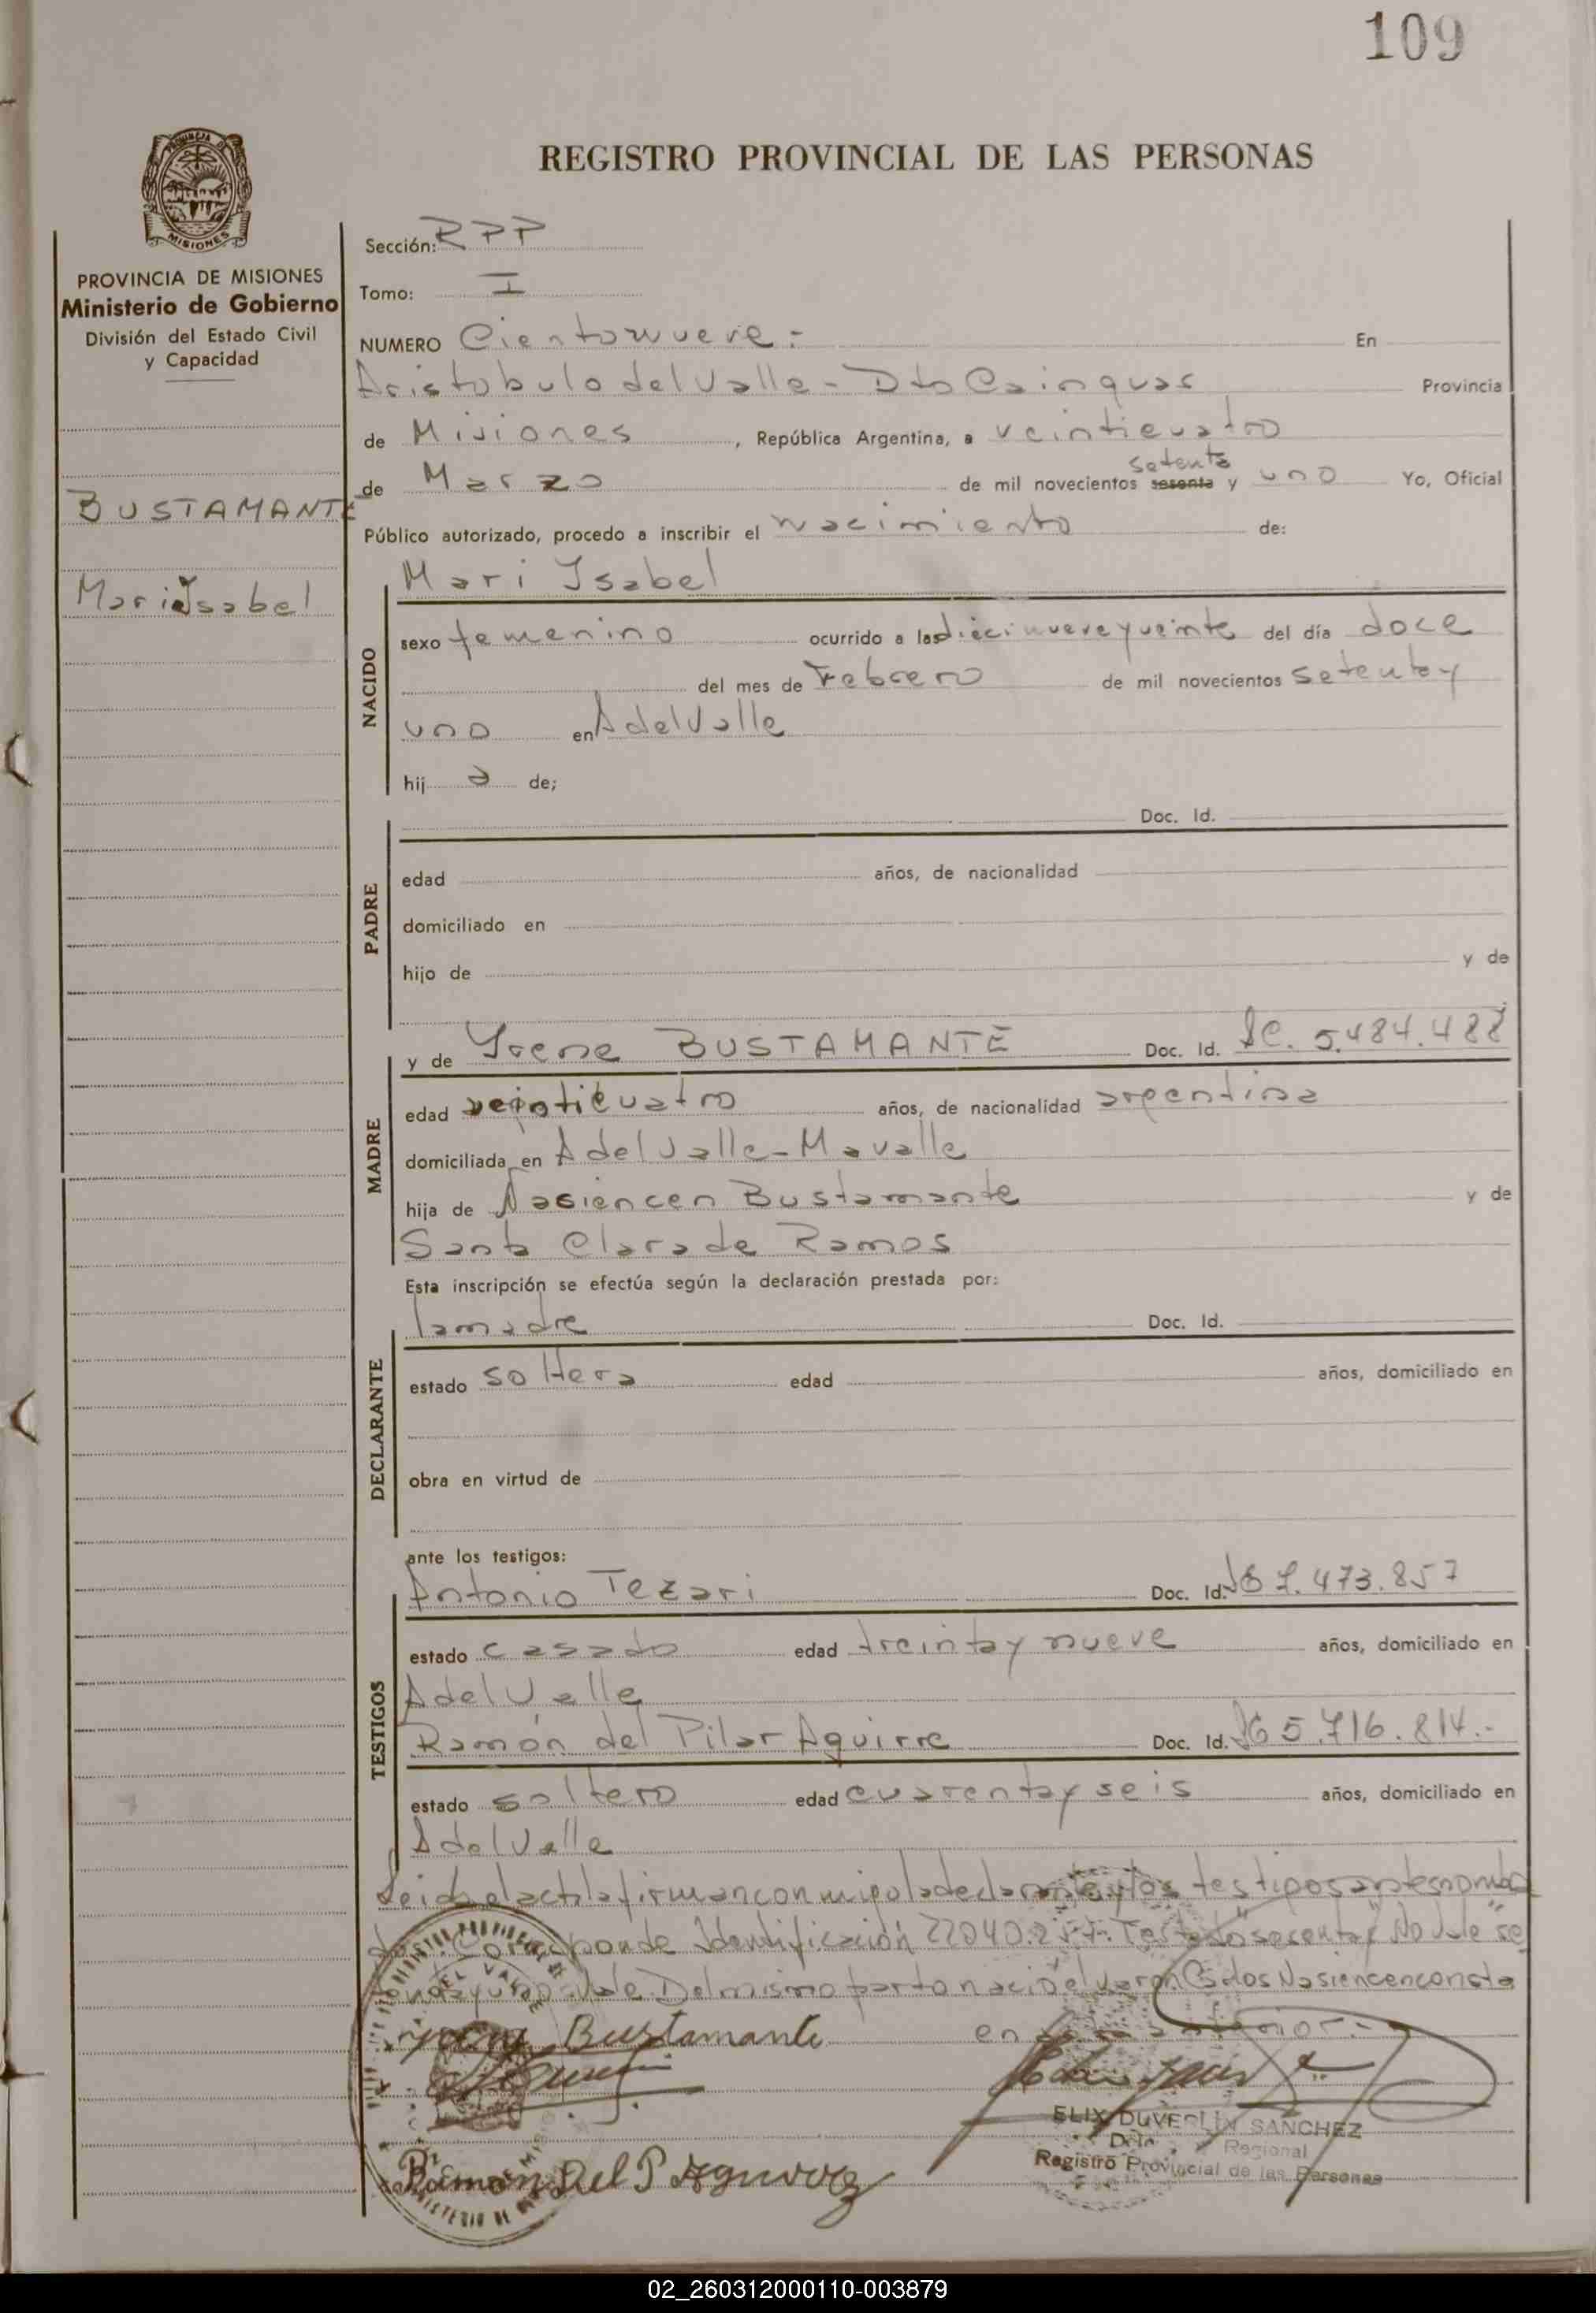 109
REGISTRO PROVINCIAL DE LAS PERSONAS
PROVINCIA DE MISIONES
Ministerio de Gobierno
División del Estado Civil
y Capacidad
BUSTAMANTE
Mari Isabel
Sección: RPP
Tomo: I
NUMERO Cientonueve.- En
Aristobulo del Valle - Dto Cainguas Provincia
de Misiones, República Argentina, a veinticuatro
setenta
de Marzo de mil novecientos sesenta y uno Yo, Oficial
Público autorizado, procedo a inscribir el nacimiento de:
NACIDO
Mari Isabel
sexo femenino ocurrido a las diecinueve y veinte del día doce
del mes de Febrero de mil novecientos setenta y
uno en A del Valle
hij a de;
PADRE
Doc. Id.
edad años, de nacionalidad
domiciliado en
hijo de y de
MADRE
y de Irene BUSTAMANTE Doc. Id. LC. 5.484.488
edad veinticuatro años, de nacionalidad argentina
domiciliada en A del Valle - Mavalle
hija de Nasiencen Bustamante y de
Santa Clara de Ramos
Esta inscripción se efectúa según la declaración prestada por:
DECLARANTE
la madre Doc. Id.
estado soltera edad años, domiciliado en
obra en virtud de
ante los testigos:
TESTIGOS
Antonio Tezari Doc. Id. 7.473.857
estado casado edad treinta y nueve años, domiciliado en
A del Valle
Ramón del Pilar Aguirre Doc. Id. 5.716.814.-
estado soltero edad cuarenta y seis años, domiciliado en
A del Valle
Leida el acta la firman conmigo la declarante y los testigos antes nomb
Corresponde Identificación 22040.257- Testado "sesenta" No vale "se
tenta y uno" vale. Del mismo parto nació el varon Carlos Nasiencen consta
en acta anterior.-
Irene Bustamante
Ramon Del P Aguirre
ELIX DUVERLIN SANCHEZ
Regional
Registro Provincial de las Personas
02_260312000110-003879